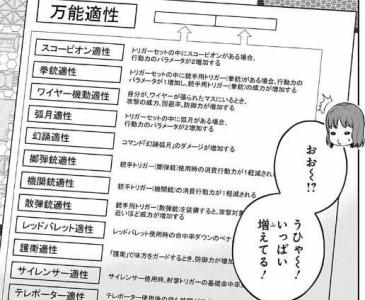 万能適性
スコーピオン適性
トリガーセットの中にスコーピオンがある場合、
行動力のパラメータが2増加する
拳銃適性
トリガーセットの中に銃手用トリガー(拳銃)がある場合、行動力の
パラメータが1増加し、銃手用トリガー(拳銃)の威力が増加する
ワイヤー機動適性
自分が、ワイヤーが張られたマスにいるとき、
攻撃の威力、回避率、防御力が増加する
弧月適性
トリガーセットの中に弧月がある場合、
行動力のパラメータが2増加する
幻踊適性
コマンド「幻踊弧月」のダメージが増加する
擲弾銃適性
銃手トリガー(擲弾銃)使用時の消費行動力が1軽減され
機関銃適性
銃手トリガー(機関銃)の消費行動力が1軽減される
散弾銃適性
銃手用トリガー(散弾銃)を装備すると、攻撃対象
近いほど威力が増加する
レッドバレット適性
レッドバレット使用時の命中率ダウンのペナ
護衛適性
「護衛」で味方をガードするとき、防御力が増加
サイレンサー適性
サイレンサー使用時、射撃トリガーの基礎命中率
テレポーター適性
テレポーター使用後の
おお〜!?
うひゃ〜!
いっぱい
増えてる!